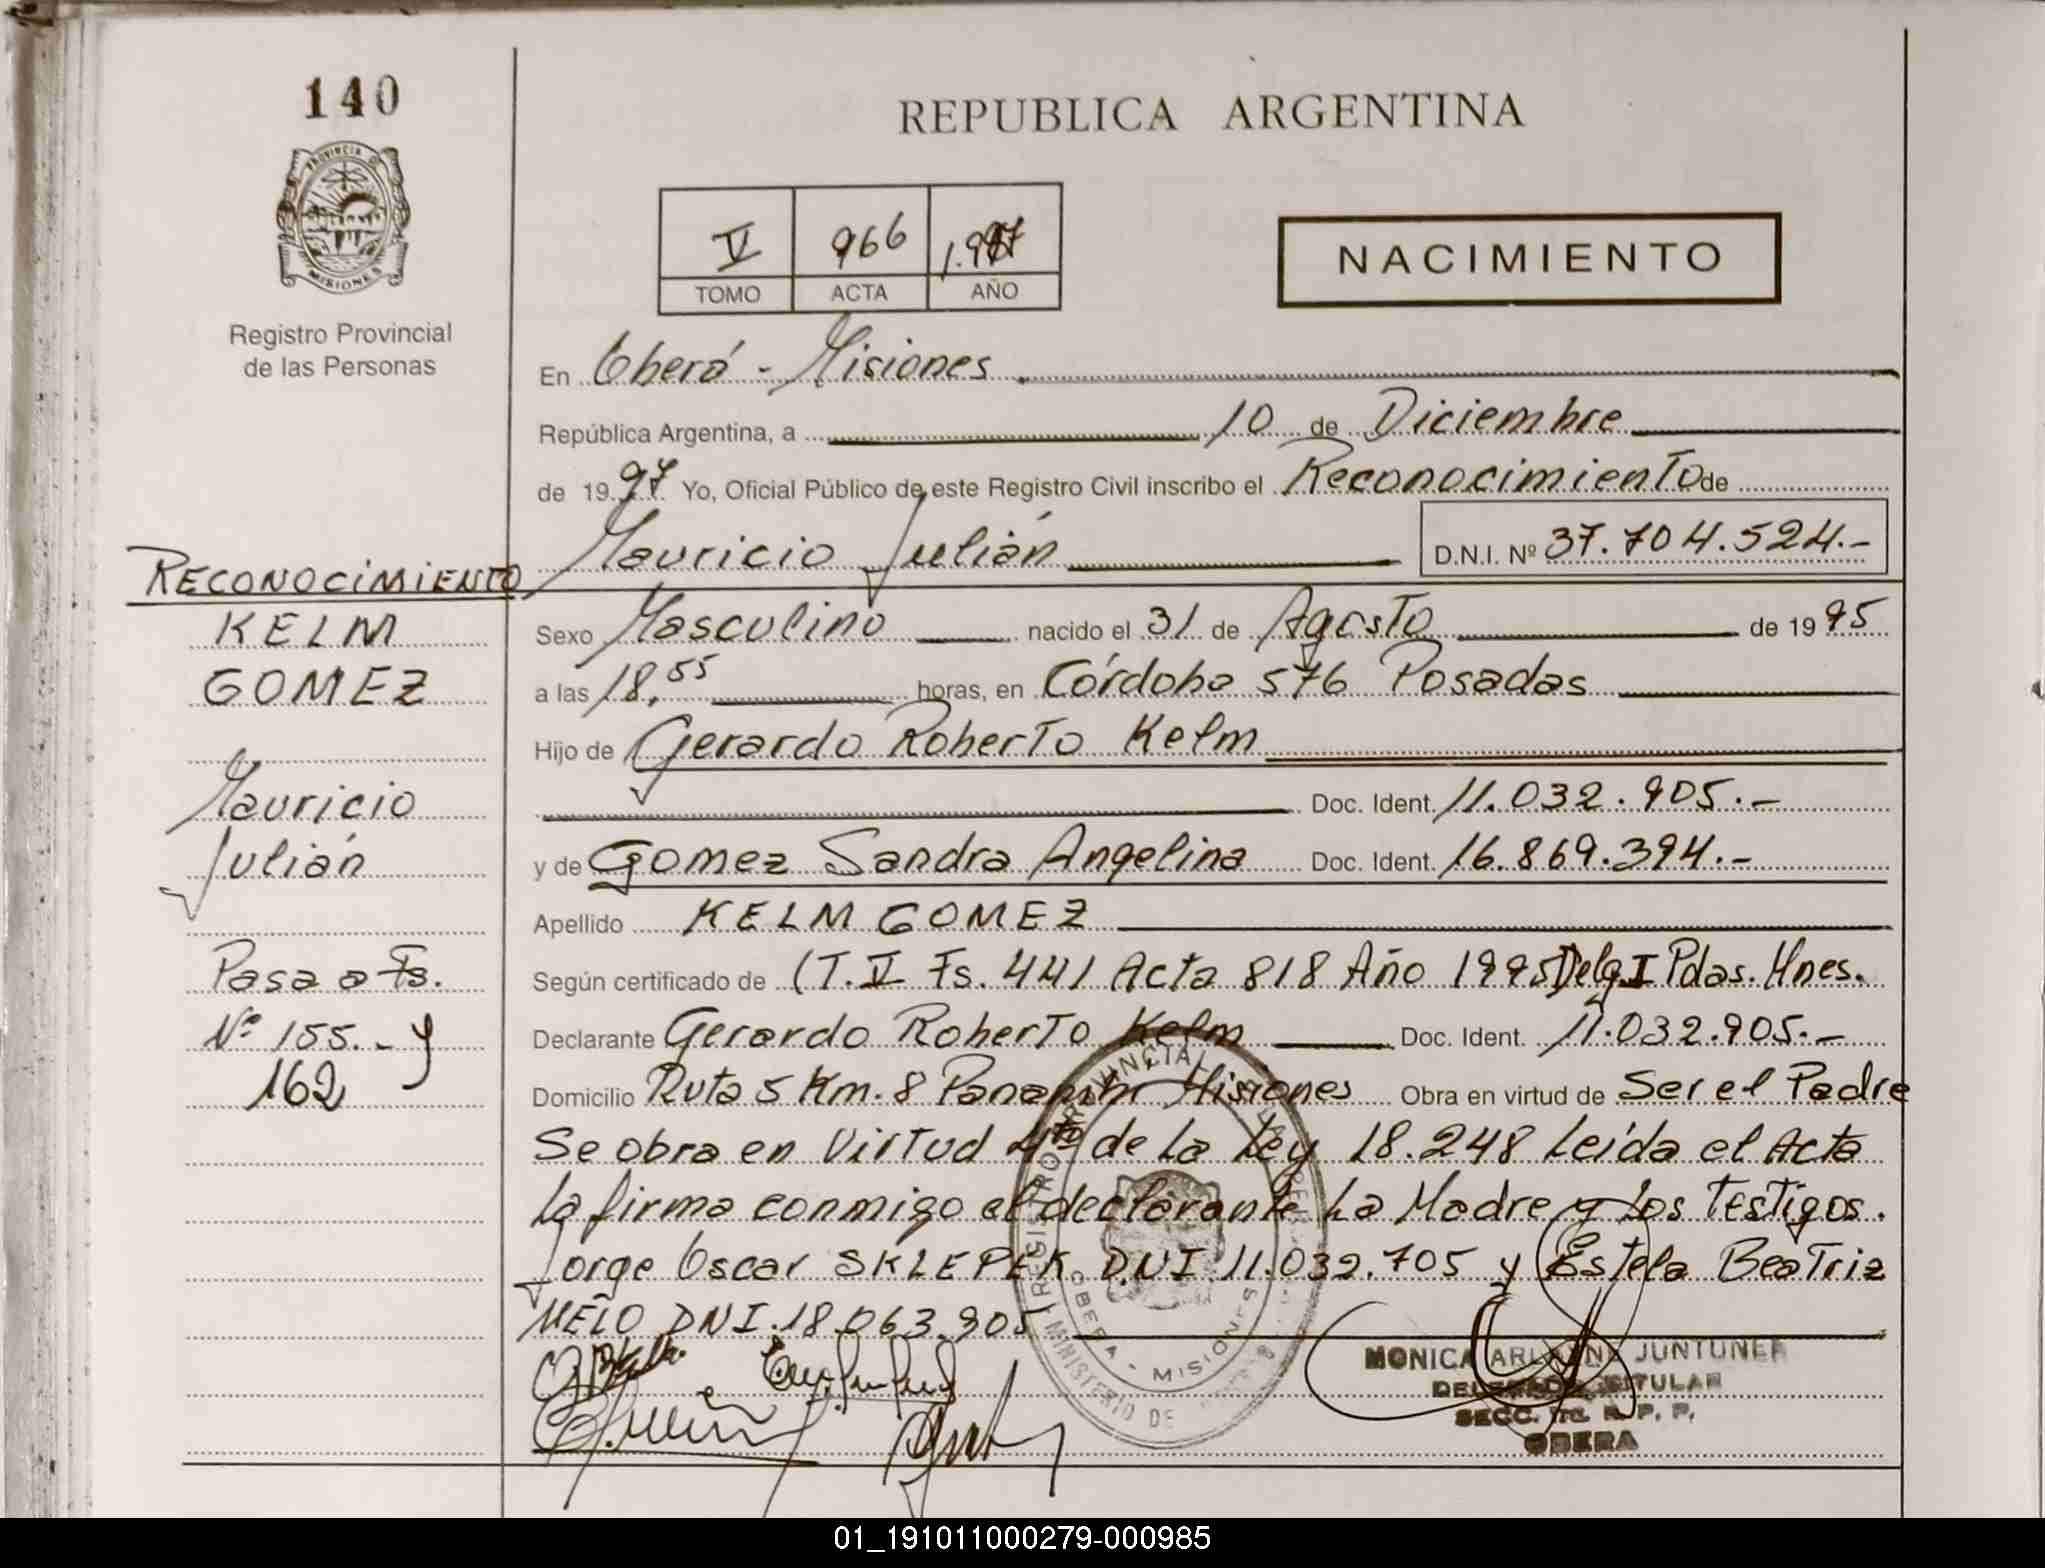 140
REPUBLICA ARGENTINA
PROVINCIA DE
MISIONES
V 966 1.997
TOMO ACTA AÑO
NACIMIENTO
Registro Provincial
de las Personas
En Oberá - Misiones
República Argentina, a 10 de Diciembre
de 1997 Yo, Oficial Público de este Registro Civil inscribo el Reconocimiento de
Mauricio Julián D.N.I. Nº 37.704.524.-
RECONOCIMIENTO
KELM
GOMEZ
Mauricio
Julián
Pasa a Fs.
Nº 155.- y
162
Sexo Masculino nacido el 31 de Agosto de 1995
a las 18,55 horas, en Córdoba 576 Posadas
Hijo de Gerardo Roberto Kelm
Doc. Ident. 11.032.905.-
y de Gomez Sandra Angelina Doc. Ident. 16.869.394.-
Apellido KELM GOMEZ
Según certificado de (T.V Fs. 441 Acta 818 Año 1995 Delg I Pdas. Mnes.
Declarante Gerardo Roberto Kelm Doc. Ident. 11.032.905.-
Domicilio Ruta 5 Km. 8 Panambi Misiones Obra en virtud de Ser el Padre
Se obra en Virtud 4to de La Ley 18.248 Leída el Acta
La firma conmigo el declarante La Madre y Los Testigos.
Jorge Oscar SKLEPEK DNI.11.032.705 y Estela Beatriz
MELO DNI.18.063.905
REGISTRO PROVINCIAL
OBERA - MISIONES
MINISTERIO DE
MONICA JUNTUNEN
DELEGADA TITULAR
SECC. R. P. P.
OBERA
01_191011000279-000985